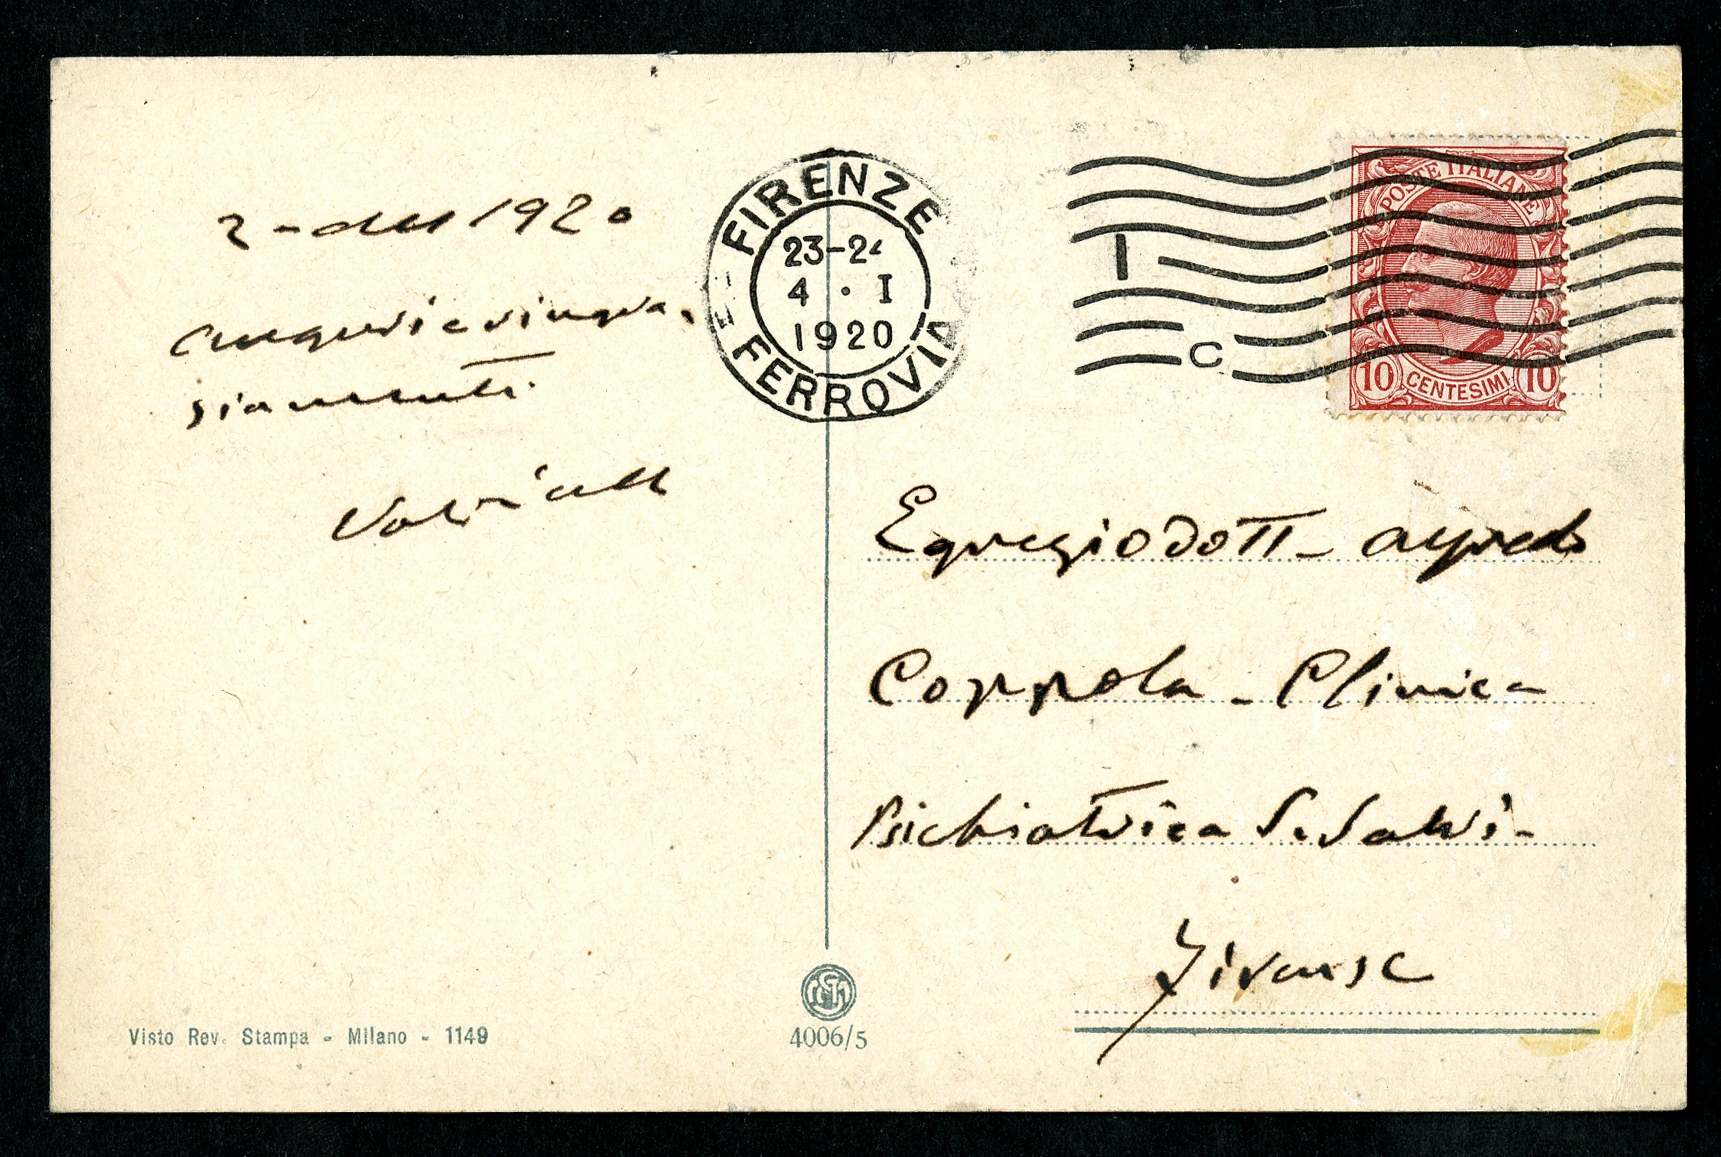 2 - del 1920
Auguri e ringra,
ziamenti.
FIRENZE
23-24
4 · I
1920
FERROVIA
I
C
POSTE ITALIANE
10 CENTESIMI 10
Egregio Dott - Alfredo
Coppola - Clinica
Psichiatrica S. Salvi -
Firenze
Visto Rev. Stampa - Milano - 1149
4006/5